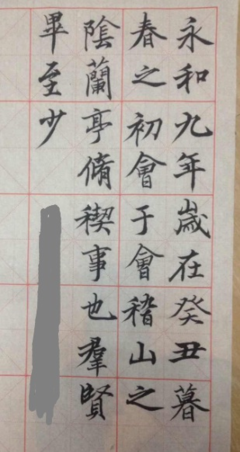 永和九年歲在癸丑暮
春之初會于會稽山之
陰蘭亭脩稧事也羣賢
畢至少